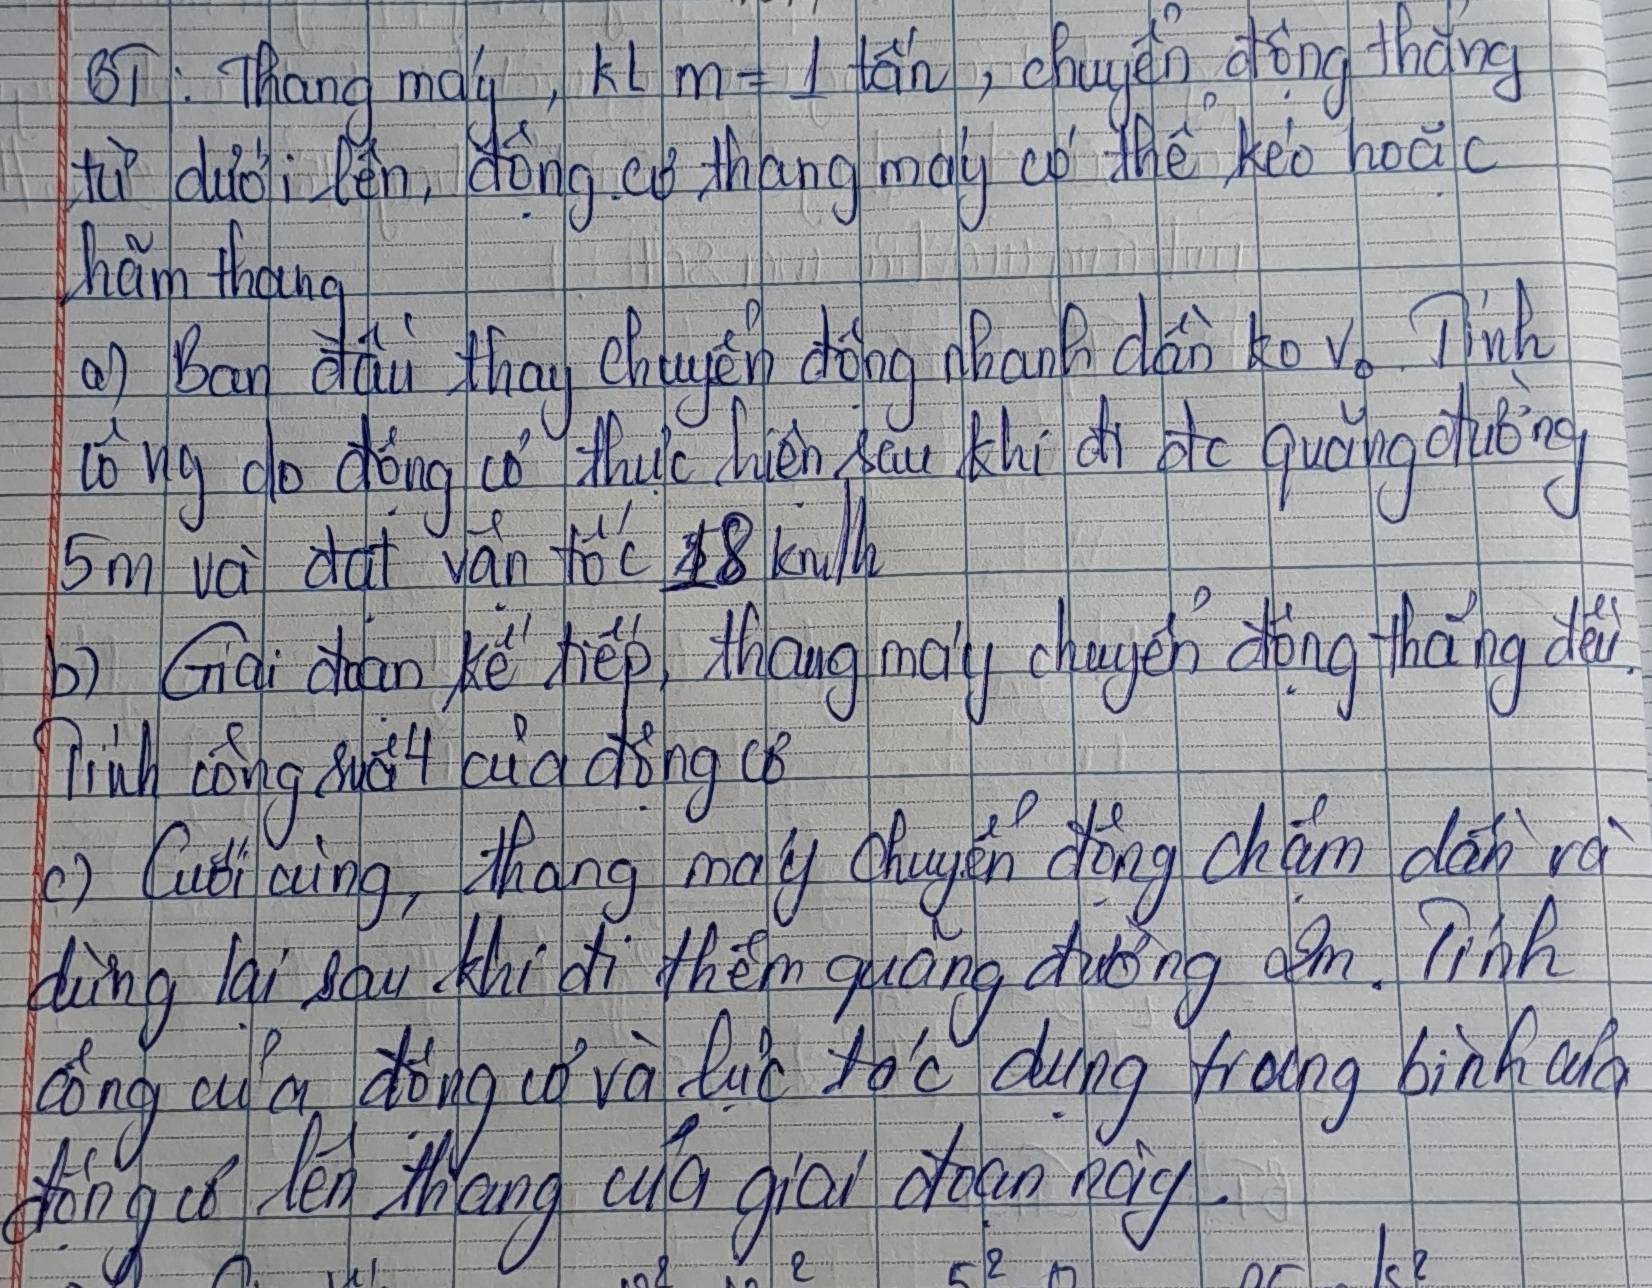 BT: Thang máy, kl m = 1 tấn, chuyển động thẳng
từ dưới lên, động cơ thang máy có thể kéo hoặc
hãm thang
a) Ban đầu thay chuyển động nhanh dần ko v₀. Tính
công do động cơ thực hiện sau khi đi đc quãng đường
5m và đạt vận tốc 18 km/h
b) Giai đoạn kế tiếp, thang máy chuyển động thẳng đều.
Tính công suất của động cơ
c) Cuối cùng, thang máy chuyển động chậm dần và
dừng lại sau khi đi thêm quãng đường 2m. Tính
công của động cơ và lực tác dụng trung bình của
động cơ lên thang của giai đoạn này.